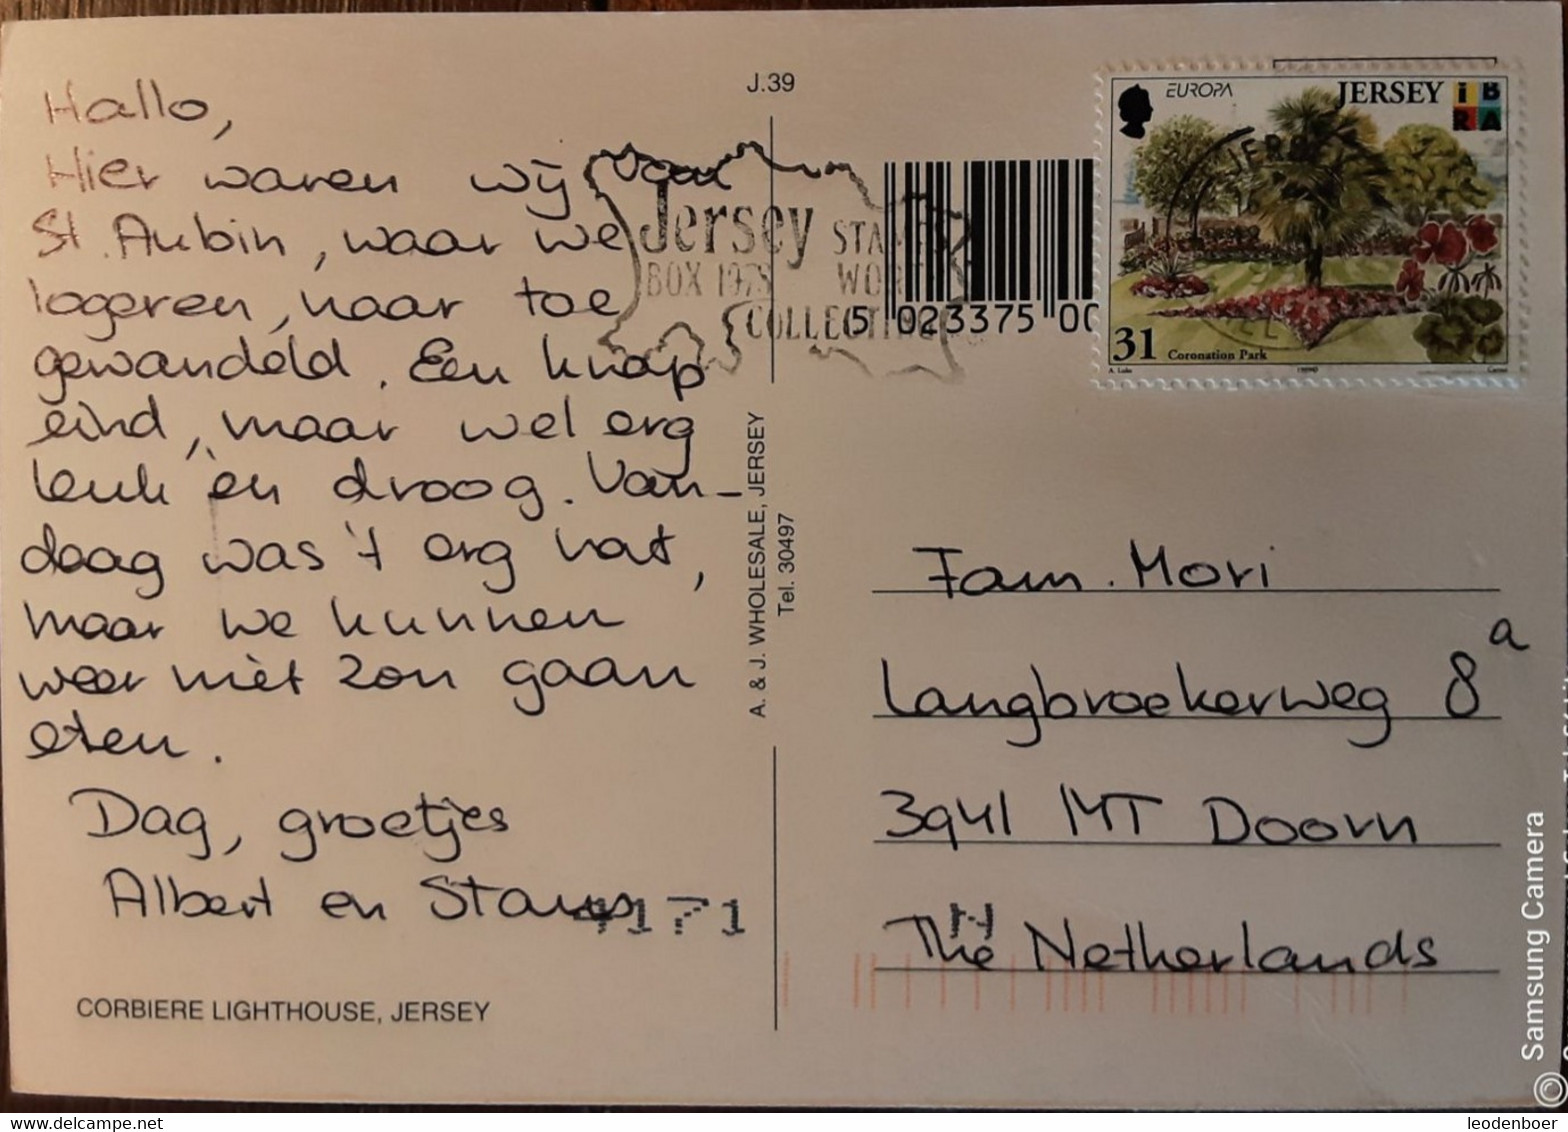 Hallo,
Hier waren wij van
St. Aubin, waar we
logeren, naar toe
gewandeld. Een knap
eind, maar wel erg
leuk en droog. Van-
daag was 't erg nat,
maar we kunnen
weer met zon gaan
eten.
Dag, groetjes
Albert en
4171
CORBIERE LIGHTHOUSE, JERSEY
J.39
Jersey STAMPS
BOX 1978 WORTH
COLLECTING
A. & J. WHOLESALE, JERSEY
Tel. 30497
5 023375 00
EUROPA JERSEY iBRA
31 Coronation Park
JERSEY
Fam. Mori
Langbroekerweg 8a
3941 MT Doorn
The Netherlands
N
© Samsung Camera
leodenboer